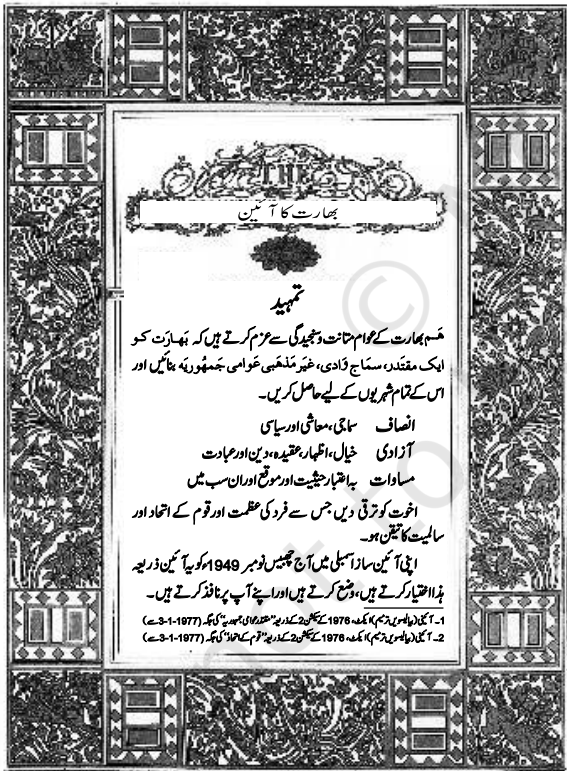 THE
بھارت کا آئین
تمہید
ہَم بھارت کے عوام متانت و سنجیدگی سے عزم کرتے ہیں کہ بَھارَت کو
ایک مقتَدر، سمَاج وَادی، غیَر مَذہَبی عَوامی جَمہُوریَہ بنائیں اور
اس کے تمام شہریوں کے لیے حاصل کریں۔
انصاف سماجی، معاشی اور سیاسی
آزادی خیال، اظہار، عقیدہ، دین اور عبادت
مساوات بہ اعتبار حیثیت اور موقع اور ان سب میں
اخوت کو ترقی دیں جس سے فرد کی عظمت اور قوم کے اتحاد اور
سالمیت کا تیقن ہو۔
اپنی آئین ساز اسمبلی میں آج چھبیس نومبر 1949ء کو یہ آئین ذریعہ
ہذا اختیار کرتے ہیں، وضع کرتے ہیں اور اپنے آپ پر نافذ کرتے ہیں۔
1۔ آئینی (بیالیسویں ترمیم) ایکٹ، 1976 کے سیکشن 2 کے ذریعہ "مقتدر عوامی جمہوریہ" کی جگہ (1977-1-3 سے)
2۔ آئینی (بیالیسویں ترمیم) ایکٹ، 1976 کے سیکشن 2 کے ذریعہ "قوم کے اتحاد" کی جگہ (1977-1-3 سے)